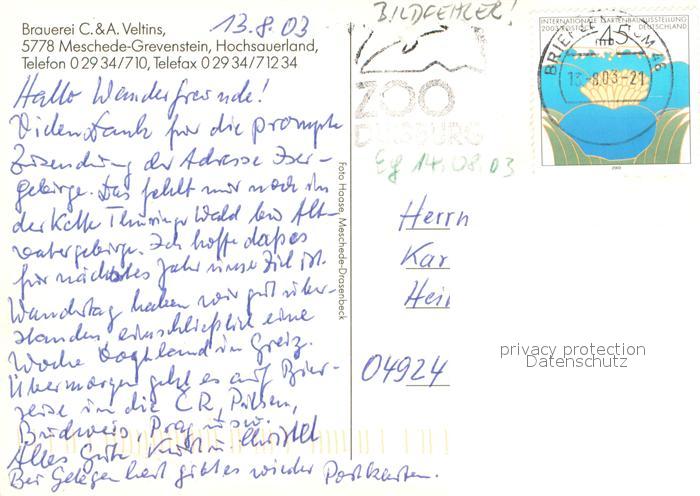 Brauerei C. & A. Veltins,
5778 Meschede-Grevenstein, Hochsauerland,
Telefon 0 29 34/710, Telefax 0 29 34/712 34
13.8.03
BILDFEHLER!
ZOO
DUISBURG
Eg 14.08.03
INTERNATIONALE GARTENBAUAUSSTELLUNG
2003 ROSTOCK DEUTSCHLAND
45
BRIEFZENTRUM 46
13.-8.03-21
2003
Hallo Wanderfreunde!
Vielen Dank für die prompte
Zusendung der Adresse Iser-
gebirge. Das fehlt mir noch in
der Kette Thüringer Wald bis Alt-
vatergebirge. Ich hoffe daß es
für nächstes Jahr unser Ziel ist.
Wandertag haben wir gut über-
standen einschließlich eine
Woche Vogtland in Greiz.
Übermorgen geht es auf Bier-
reise in die CR, Pilsen,
Budweis, Prag usw.
Alles Gute Christel
Bei Gelegenheit gibt es wieder Postkarten.
Foto Haase, Meschede-Drasenbeck
Herrn
Kar
Hei
04924
privacy protection
Datenschutz